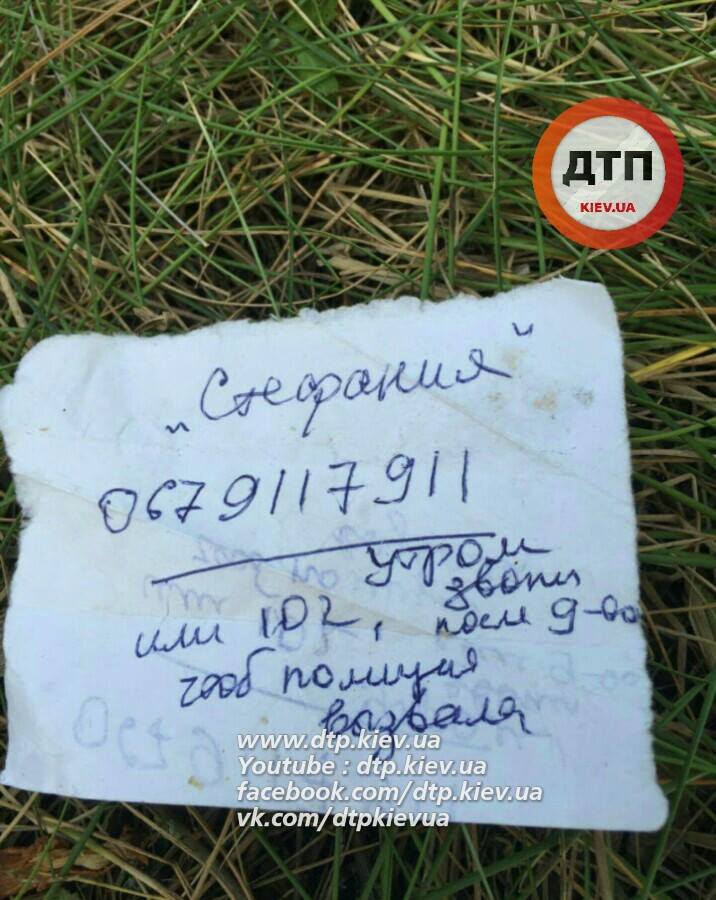 ДТП
KIEV.UA
„Стефания"
0679117911
утром
звони
или 102, после 9-00
чтоб полиция
вызвала
www.dtp.kiev.ua
Youtube : dtp.kiev.ua
facebook.com/dtp.kiev.ua
vk.com/dtpkievua